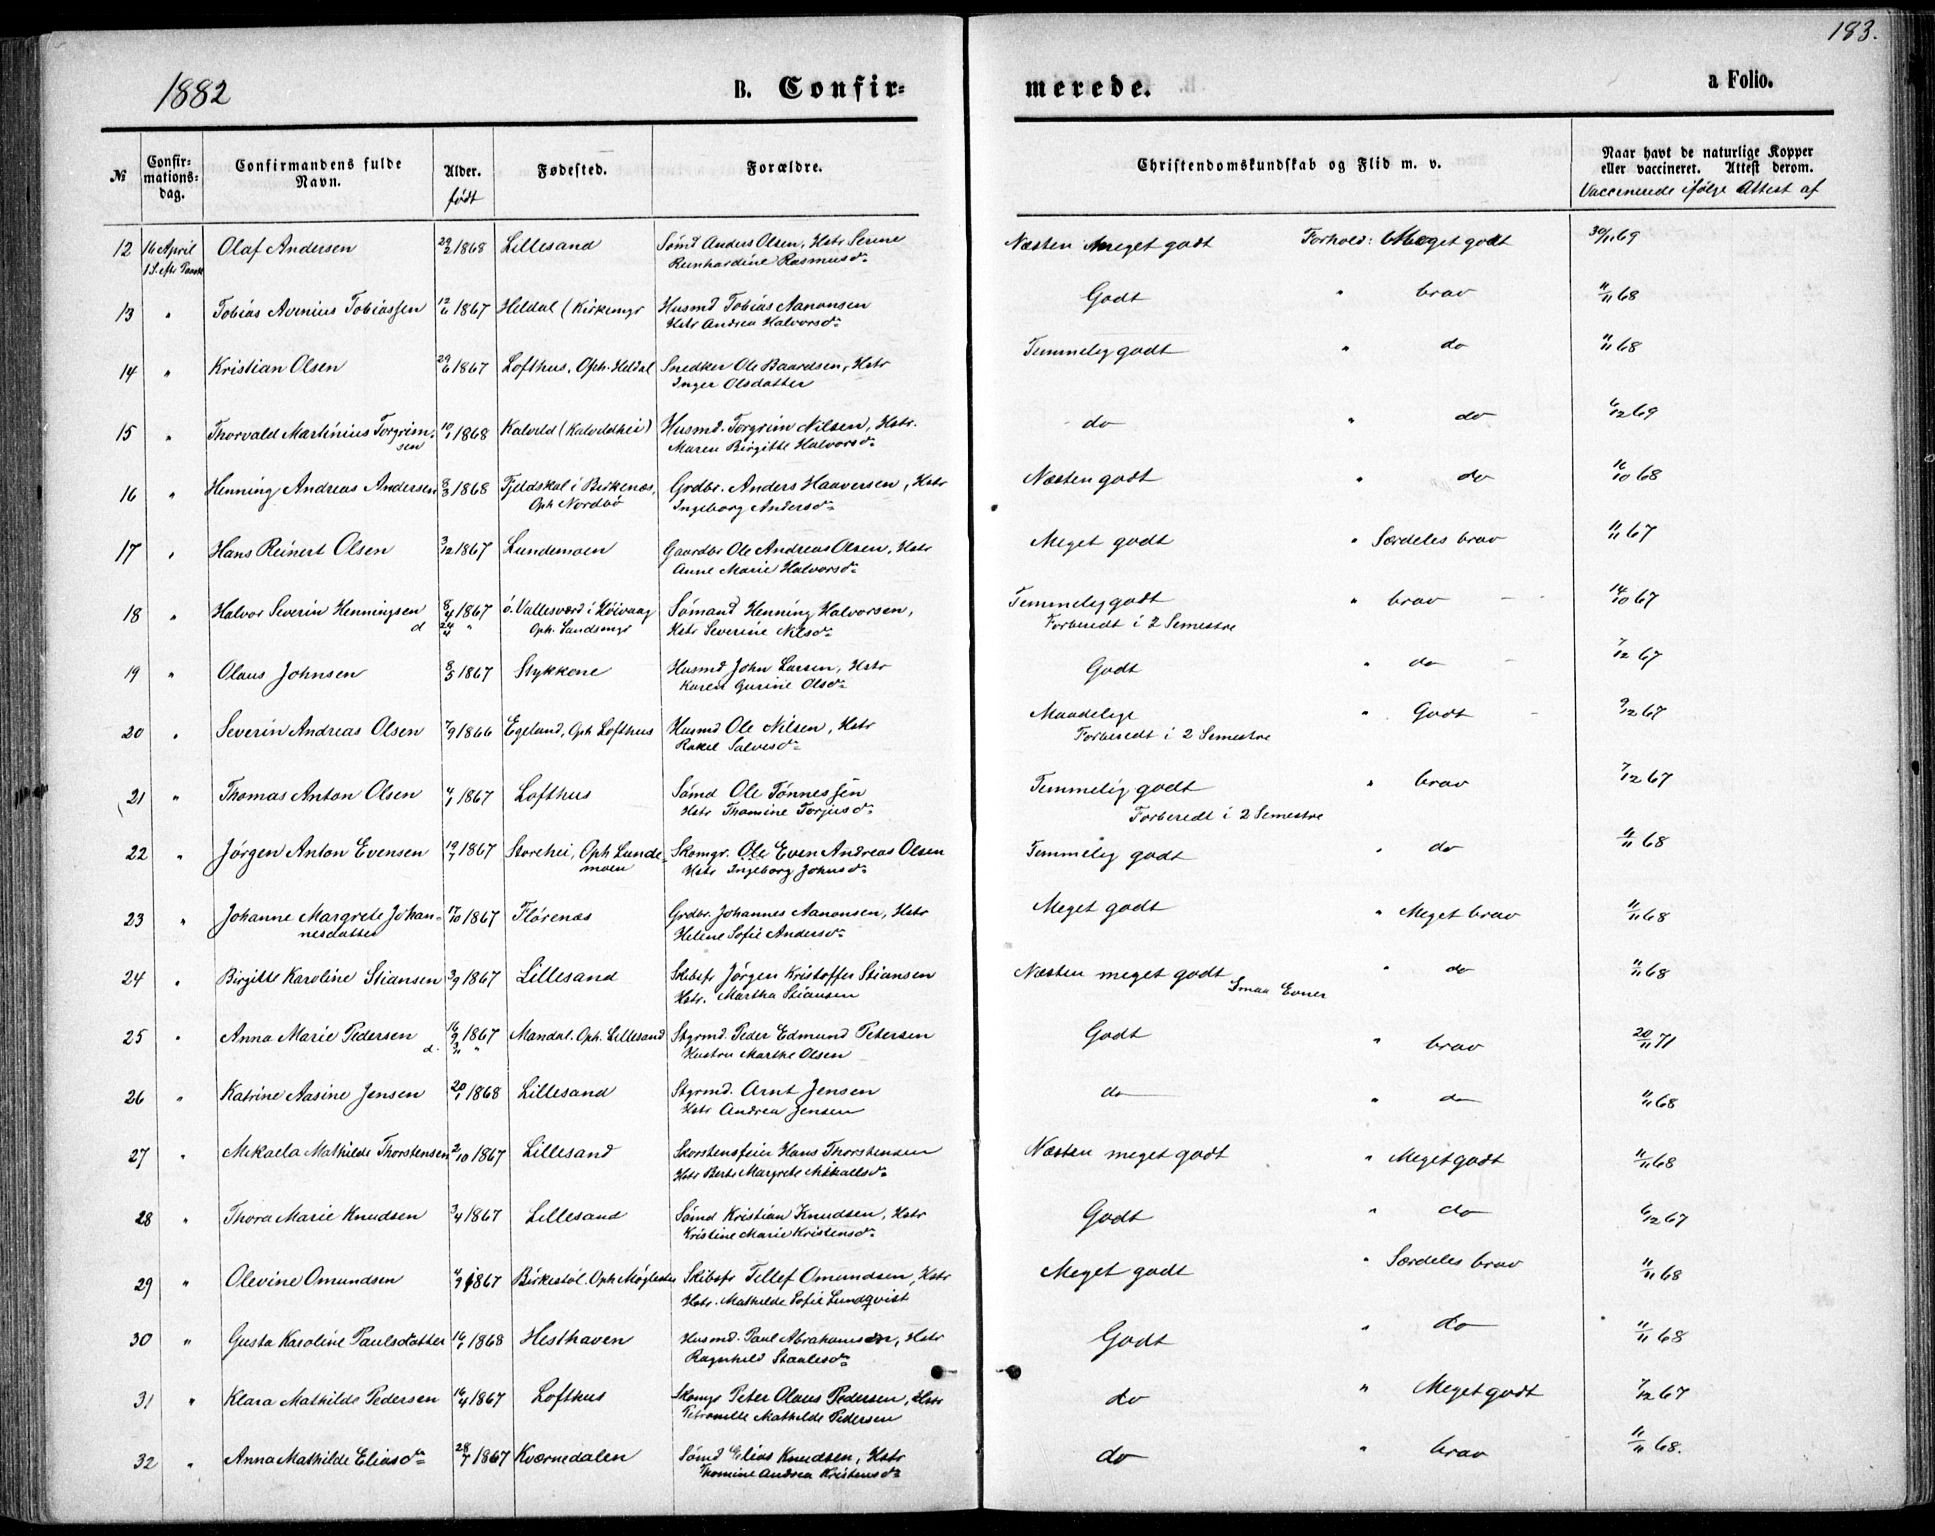 183.
1882 B. Confir= merede. a Folio.
№ Confirmationsdag. Confirmandens fulde Navn. Alder. født Fødested. Forældre. Christendomskundskab og Flid m. v. Naar havt de naturlige Kopper eller vaccineret. Attest derom.
Vaccinerede ifølge Attest af
12 16 April Olaf Andersen 29/2 1868 Lillesand Sømd Anders Olsen, Hstr Serine Næsten meget godt Forhold: Meget godt 30/11 69
1 S. eft. Paaske Reinhardine Rasmusd:
13 " Tobias Avenius Tobiassen 12/6 1867 Heldal (Kirkemyr Husmd Tobias Aanonsen Godt " brav 11/11 68
Hstr Andrea Halvorsd:
14 " Kristian Olsen 29/6 1867 Lofthus, Oph. Heldal Snedker Ole Baardsen, Hstr Temmelig godt " do 11/11 68
Inger Olsdatter
15 " Thorvald Martinius Torgrim- 10/1 1868 Kalveld (Kalveldhei) Husmd. Torgrim Nilsen, Hstr. do " do 6/12 69
sen Maren Birgitte Halvorsd:
16 " Henning Andreas Andersen 8/3 1868 Fjeldskal i Birkenæs, Grdbr. Anders Haaversen, Hstr Næsten godt " do 16/10 68
Oph Nordbø Ingeborg Andersd:
17 " Hans Reinert Olsen 3/12 1867 Lundemoen Gaardbr Ole Andreas Olsen, Hstr Meget godt " Særdeles brav 11/11 67
Anne Marie Halvorsd:
18 " Halvor Severin Henningsen 8/4 1867 ö. Vallesværd i Høivaag Sømand Henning Halvorsen, Temmelig godt " brav 14/10 67
d 24/4 " Oph. Sandsmyr Hstr Severine Nilsd: Forberedt i 2 Semestre
19 " Olaus Johnsen 8/5 1867 Stykkene Husmd John Larsen, Hstr Godt " do 7/12 67
Karen Gurine Olsd:
20 " Severin Andreas Olsen 7/9 1866 Egeland, Oph Lofthus Husmd Ole Nilsen, Hstr Maadelige " Godt 9/12 67
Rakel Salvesd: Forberedt i 2 Semestre
21 " Thomas Anton Olsen 4/1 1867 Lofthus Sømd Ole Tønnessen Temmelig godt " brav 7/12 67
Hstr Thomine Torjusd: Forberedt i 2 Semestre
22 " Jørgen Anton Evensen 19/7 1867 Storehei, Oph Lunde- Skomgr. Ole Even Andreas Olsen Temmelig godt " do 11/11 68
moen Hstr Ingeborg Johnsd:
23 " Johanne Margrete Johan- 17/10 1867 Flørenæs Grdbr. Johannes Aanonsen, Hstr Meget godt " Meget brav 11/11 68
nesdatter Helene Sofie Andersd:
24 " Birgitte Karoline Stiansen 3/9 1867 Lillesand Skibsfr Jørgen Kristoffer Stiansen Næsten meget godt " do 11/11 68
Hstr. Martha Stiansen Smaa Evner
25 " Anna Marie Pedersen 16/9 1867 Mandal. Oph. Lillesand Styrmd. Peder Edmund Petersen Godt " brav 20/11 71
d. 3/11 " Hustru Marthe Olsen
26 " Katrine Aasine Jensen 20/1 1868 Lillesand Styrmd. Arnt Jensen do " do 11/11 68
Hstr Andrea Jensen
27 " Mikaela Mathilde Thorstensen 2/10 1867 Lillesand Skorstensfeier Hans Thorstensen Næsten meget godt " Meget godt 11/11 68
Hstr Berte Margrete Mikaelsd:
28 " Thora Marie Knudsen 3/4 1867 Lillesand Sømd Kristian Knudsen, Hstr Godt " do 6/12 67
Kristine Marie Kristensd:
29 " Olevine Omundsen 4/9 1867 Birkestøl. Oph Møglestu Skibsfr Tellef Omundsen, Hstr Meget godt " Særdeles brav 11/11 68
Hstr. Mathilde Sofie Lundqvist
30 " Gusta Karoline Paulsdatter 16/1 1868 Hesthaven Husmd. Paul Abrahamsen, Hstr Godt " do 11/11 68
Ragnhild Staalesd:
31 " Klara Mathilde Pedersen 16/4 1867 Lofthus Skomgr Peter Olaus Pedersen, Hstr do " Meget godt 7/12 67
Petronelle Mathilde Pedersen
32 " Anna Mathilde Eliasd: 28/7 1867 Kværnedalen Sømd Elias Knudsen, Hstr do " brav 11/11 68.
Thomine Andrea Kristensd: